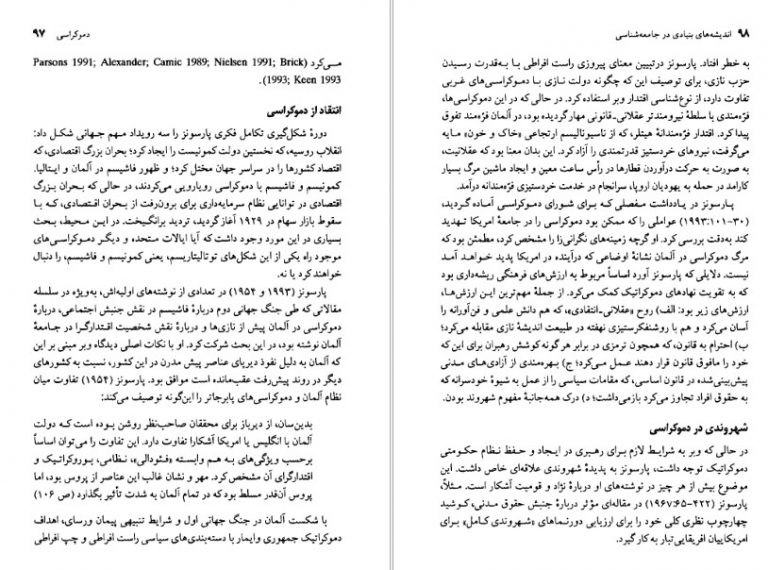 دموکراسی ۹۷
می‌کرد (Parsons 1991; Alexander; Camic 1989; Nielsen 1991; Brick
1993; Keen 1993).
انتقاد از دموکراسی
دورهٔ شکل‌گیری تکامل فکری پارسونز را سه رویداد مهم جهانی شکل داد:
انقلاب روسیه، که نخستین دولت کمونیست را ایجاد کرد؛ بحران بزرگ اقتصادی، که
اقتصاد کشورها را در سراسر جهان مختل کرد؛ و ظهور فاشیسم در آلمان و ایتالیا.
کمونیسم و فاشیسم با دموکراسی رویارویی می‌کردند، در حالی که بحران بزرگ
اقتصادی در توانایی نظام سرمایه‌داری برای برون‌رفت از بحران اقتصادی، که با
سقوط بازار سهام در ۱۹۲۹ آغاز گردید، تردید برانگیخت. در این محیط، بحث
بسیاری در این مورد وجود داشت که آیا ایالات متحده و دیگر دموکراسی‌های
موجود راه یکی از این شکل‌های توتالیتاریسم، یعنی کمونیسم و فاشیسم، را دنبال
خواهند کرد یا نه.
پارسونز (۱۹۹۳ و ۱۹۵۴) در تعدادی از نوشته‌های اولیه‌اش، به‌ویژه در سلسله
مقالاتی که طی جنگ جهانی دوم دربارهٔ فاشیسم در نقش جنبش اجتماعی، دربارهٔ
دموکراسی در آلمان پیش از نازی‌ها و دربارهٔ نقش شخصیت اقتدارگرا در جامعهٔ
آلمان نوشته بود، در این بحث شرکت کرد. او با نکات اصلی دیدگاه وبر مبنی بر این
که آلمان به دلیل نفوذ دیرپای عناصر پیش مدرن در این کشور، نسبت به کشورهای
دیگر در روند پیش‌رفت عقب‌مانده است موافق بود. پارسونز (۱۹۵۴) تفاوت میان
نظام آلمان و دموکراسی‌های پابرجاتر را این‌گونه توصیف می‌کند:
بدین‌سان، از دیرباز برای محققان صاحب‌نظر روشن بوده است که دولت
آلمان با انگلیس یا امریکا آشکارا تفاوت دارد. این تفاوت را می‌توان اساساً
برحسب ویژگی‌های به هم وابسته «فئودالی»، نظامی، بوروکراتیک و
اقتدارگرای آن مشخص کرد. مهر و نشان غالب این عناصر از پروس بود، اما
پروس آن‌قدر مسلط بود که در تمام آلمان به شدت تأثیر بگذارد (ص ۱۰۶)
با شکست آلمان در جنگ جهانی اول و شرایط تنبیهی پیمان ورسای، اهداف
دموکراتیک جمهوری وایمار با دسته‌بندی‌های سیاسی راست افراطی و چپ افراطی
۹۸ اندیشه‌های بنیادی در جامعه‌شناسی
به خطر افتاد. پارسونز درتبیین معنای پیروزی راست افراطی با به‌قدرت رسیدن
حزب نازی، برای توصیف این که چگونه دولت نازی با دموکراسی‌های غربی
تفاوت دارد، از نوع‌شناسی اقتدار وبر استفاده کرد. در حالی که در این دموکراسی‌ها،
فرّه‌مندی با سلطهٔ نیرومندتر عقلانی‌ـ‌قانونی مهار گردیده بود، در آلمان فرّه‌مند تفوق
پیدا کرد. اقتدار فرّه‌مندانهٔ هیتلر، که از ناسیونالیسم ارتجاعی «خاک و خون» مایه
می‌گرفت، نیروهای خردستیز قدرتمندی را آزاد کرد. این بدان معنا بود که عقلانیت،
به صورت به حرکت درآوردن قطارها در رأس ساعت معین و ایجاد ماشین مرگ بسیار
کارامد در حمله به یهودیان اروپا، سرانجام در خدمت خردستیزی فرّه‌مندانه درآمد.
پارسونز در یادداشت مفصلی که برای شورای دموکراسی آماده گردید،
(۱۹۹۳:۱۰۱-۳۰) عواملی را که ممکن بود دموکراسی را در جامعهٔ امریکا تهدید
کند به‌دقت بررسی کرد. او گرچه زمینه‌های نگرانی‌زا را مشخص کرد، مطمئن بود که
مرگ دموکراسی در آلمان نشانهٔ اوضاعی که درآینده در امریکا پدید خواهد آمد
نیست. دلایلی که پارسونز آورد اساساً مربوط به ارزش‌های فرهنگی ریشه‌داری بود
که به تقویت نهادهای دموکراتیک کمک می‌کرد. از جملهٔ مهم‌ترین این ارزش‌ها،
ارزش‌های زیر بود: الف) روح «عقلانی‌ـ‌انتقادی»، که هم دانش علمی و فن‌آورانه را
آسان می‌کرد و هم با روشنفکرستیزی نهفته در طبیعت اندیشهٔ نازی مقابله می‌کرد؛
ب) احترام به قانون، که همچون ترمزی در برابر هر گونه کوشش رهبران برای این که
خود را مافوق قانون قرار دهند عمل می‌کرد؛ ج) بهره‌مندی از آزادی‌های مدنی
پیش‌بینی‌شده در قانون اساسی، که مقامات سیاسی را از عمل به شیوهٔ خودسرانه که
به حقوق افراد تجاوز می‌کرد بازمی‌داشت؛ د) درک همه‌جانبهٔ مفهوم شهروند بودن.
شهروندی در دموکراسی
در حالی که وبر به شرایط لازم برای رهبری در ایجاد و حفظ نظام حکومتی
دموکراتیک توجه داشت، پارسونز به پدیدهٔ شهروندی علاقه‌ای خاص داشت. این
موضوع بیش از هر چیز در نوشته‌های او دربارهٔ نژاد و قومیت آشکار است. مثلاً،
پارسونز (۱۹۶۷:۶۵-۴۲۲) در مقاله‌ای مؤثر دربارهٔ جنبش حقوق مدنی، کوشید
چهارچوب نظری کلی خود را برای ارزیابی دورنماهای «شهروندی کامل» برای
امریکاییان افریقایی‌تبار به کار گیرد.